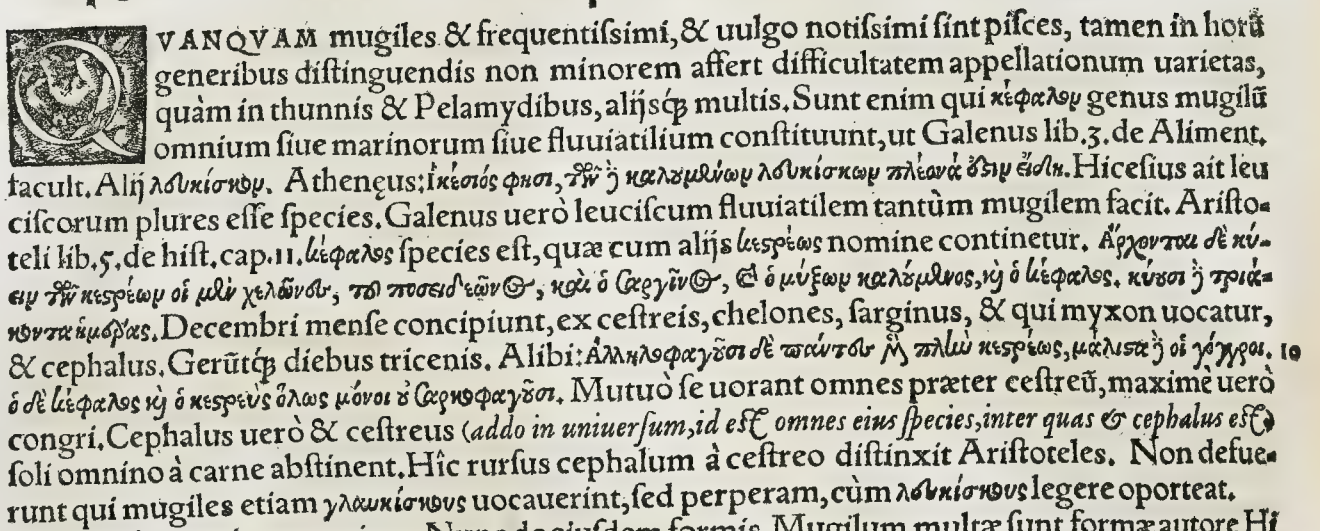 QVANQVAM mugiles & frequentiſsimi, & uulgo notiſsimi ſint piſces, tamen in horū
generibus diſtinguendis non minorem affert difficultatem appellationum uarietas,
quàm in thunnis & Pelamydibus, alijsꝗ́; multis. Sunt enim qui κέφαλον genus mugilū
omnium ſiue marinorum ſiue fluuiatilium conſtituunt, ut Galenus lib.3. de Aliment.
facult. Alij λευκίσκον. Athenęus: Ἱκέσιός φησι, τῶν ἢ καλουμένων λευκίσκων πλέονά ἐστιν εἴδη. Hiceſius ait leu
ciſcorum plures eſſe ſpecies. Galenus uerò leuciſcum fluuiatilem tantùm mugilem facit. Ariſto-
teli lib.5. de hiſt. cap.11. κέφαλος ſpecies eſt, quæ cum alijs κεστρέως nomine continetur. Ἄρχονται δὲ κύ-
ειν τῶν κεστρέων οἱ μὲν χελῶνες, τοῦ ποσειδεῶνος, καὶ ὁ σαργῖνος, καὶ ὁ μύξων καλούμενος, καὶ ὁ κέφαλος. κύουσι ἢ τριά-
κοντα ἡμέρας. Decembri menſe concipiunt, ex ceſtreis, chelones, ſarginus, & qui myxon uocatur,
& cephalus. Gerūtꝗ́; diebus tricenis. Alibi: Ἀλληλοφαγοῦσι δὲ πάντες μὲν πλὴν κεστρέως, μάλιστα ἢ οἱ γόγγροι. 10
ὁ δὲ κέφαλος καὶ ὁ κεστρεὺς ὅλως μόνοι οὐ σαρκοφαγοῦσι. Mutuò ſe uorant omnes præter ceſtreū, maximè uerò
congri. Cephalus uerò & ceſtreus (addo in uniuerſum, id eſt omnes eius ſpecies, inter quas & cephalus eſt)
ſoli omnino à carne abſtinent. Hîc rurſus cephalum à ceſtreo diſtinxit Ariſtoteles. Non defue-
runt qui mugiles etiam γλαυκίσκους uocauerint, ſed perperam, cùm λευκίσκους legere oporteat.
eiuſdem formis. Mugilum multæ ſunt formæ autore Hi